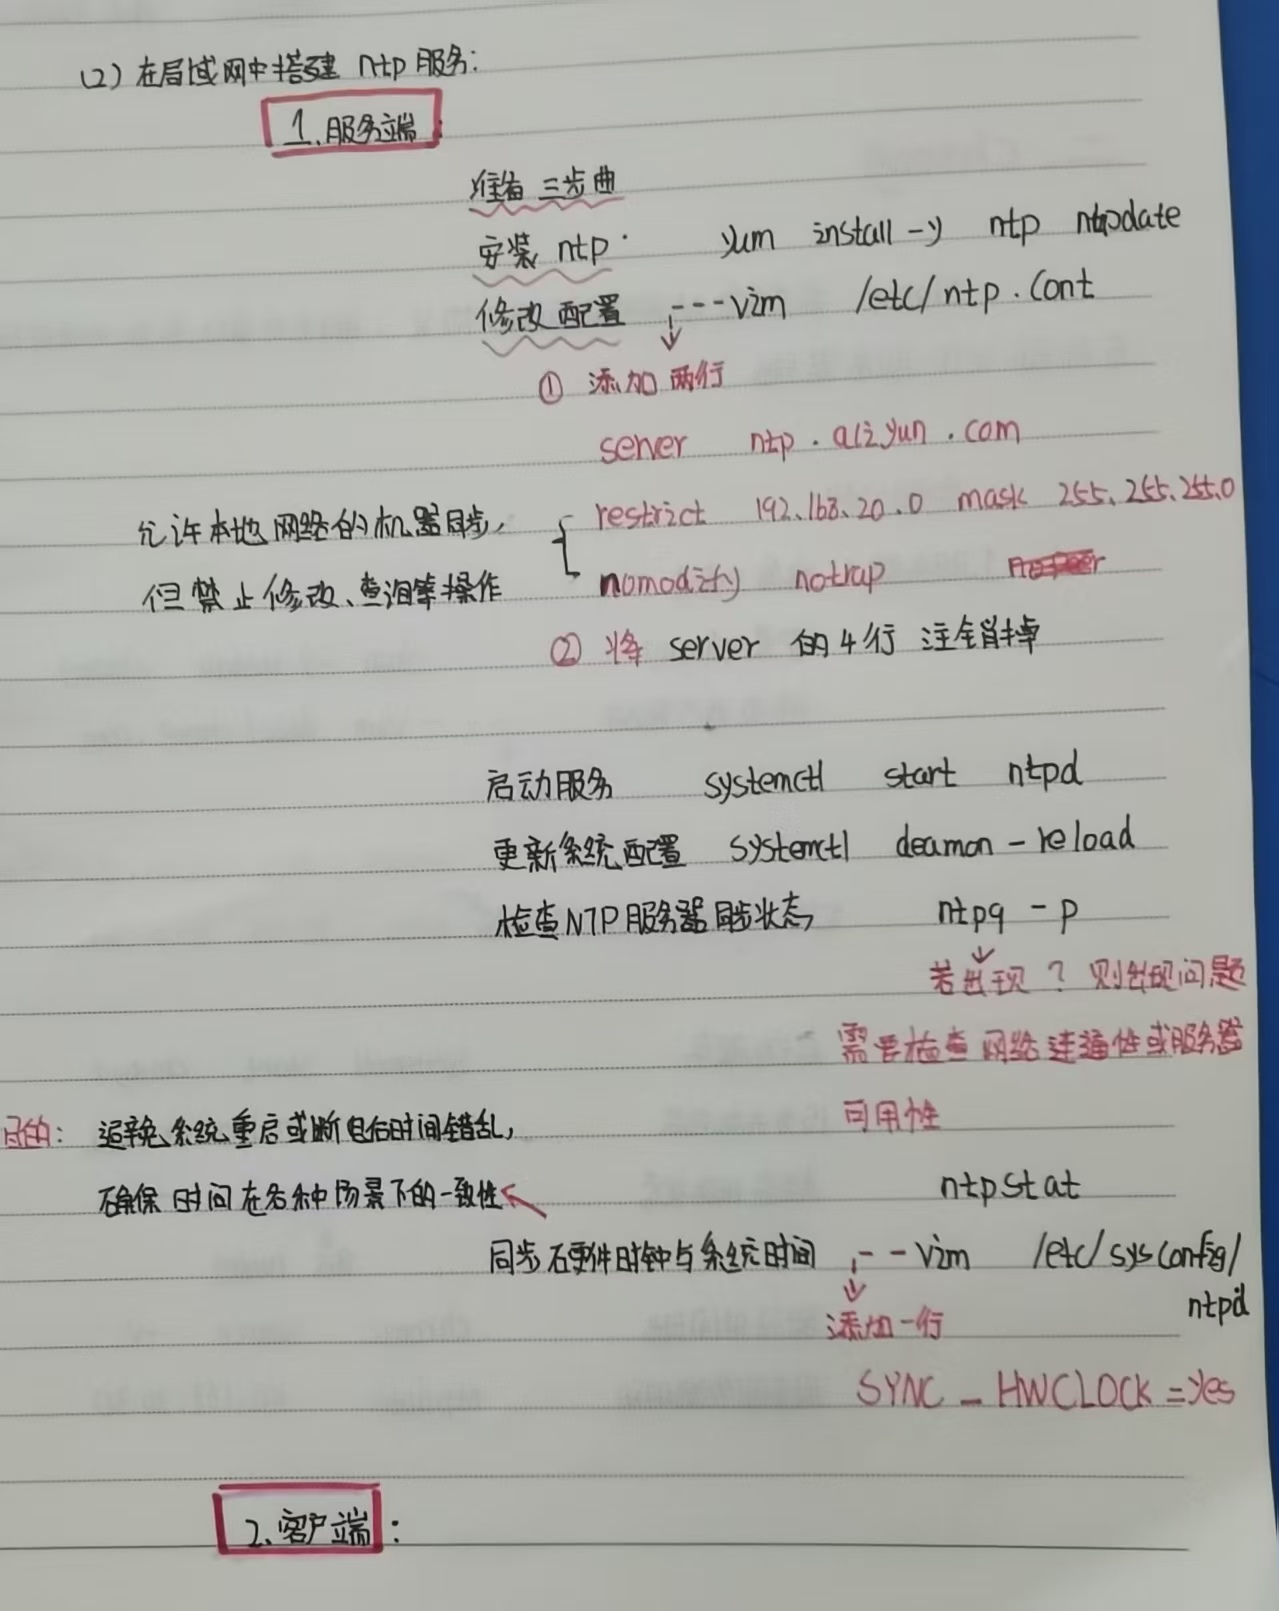 (2) 在局域网中搭建 ntp 服务:
1、服务端:
准备三步曲
安装 ntp · yum install -y ntp ntpdate
修改配置 ---vim /etc/ntp.cont
① 添加两行
server ntp.aliyun.com
restrict 192.168.20.0 mask 255.255.255.0
允许本地网络的机器同步,
nomodify notrap
但禁止修改、查询等操作
② 将 server 的4行 注销掉
启动服务 systemctl start ntpd
更新系统配置 systemctl deamon-reload
检查NTP服务器同步状态 ntpq -p
若出现 ? 则出现问题
需要检查网络连通性或服务器
可用性
目的: 避免系统重启或断电后时间错乱,
确保时间在各种场景下的一致性
ntpstat
同步硬件时钟与系统时间 ---vim /etc/sysconfig/
ntpd
添加一行
SYNC_HWCLOCK=yes
2、客户端: